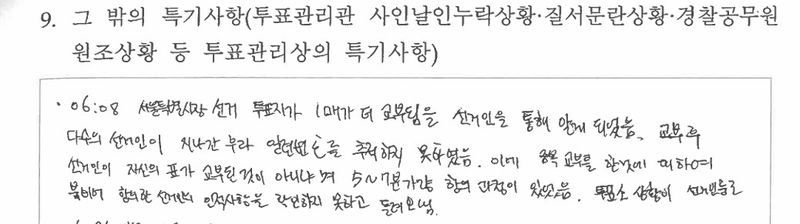 9. 그 밖의 특기사항(투표관리관 사인날인누락상황·질서문란상황·경찰공무원
원조상황 등 투표관리상의 특기사항)
· 06:08 서울특별시장 선거 투표지가 1매가 더 교부됨을 선거인을 통해 알게 되었음. 교부 후
다수의 선거인이 지나간 후라 일련번호를 추적하지 못하였음. 이에 중복 교부를 한것에 대하여
선거인이 자신의 표가 교부된 것이 아니냐며 5~7분가량 항의 과정이 있었음. 투표소 상황이 선거인들로
붐비어 항의한 선거인의 인적사항을 확인하지 못하고 돌려보냄.